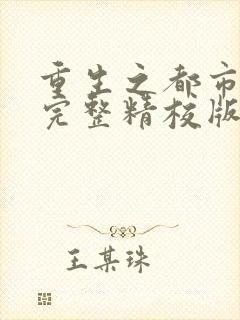 重生之都市
完整精校版
王某珠